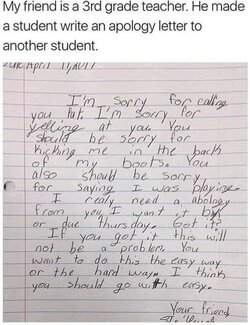 My friend is a 3rd grade teacher. He made
a student write an apology letter to
another student.
April 11, 2017
I'm sorry for calling
you fat. I'm sorry for
yelling at you. You
should be sorry for
kicking me in the back
of my boots. You
also should be sorry
for saying I was playing.
I realy need a apology
from you I want it by
or due thursday. Got it?
If you got it this will
not be a problem. You
want to do this the easy way
or the hard way. I think
you should go with easy.
Your friend